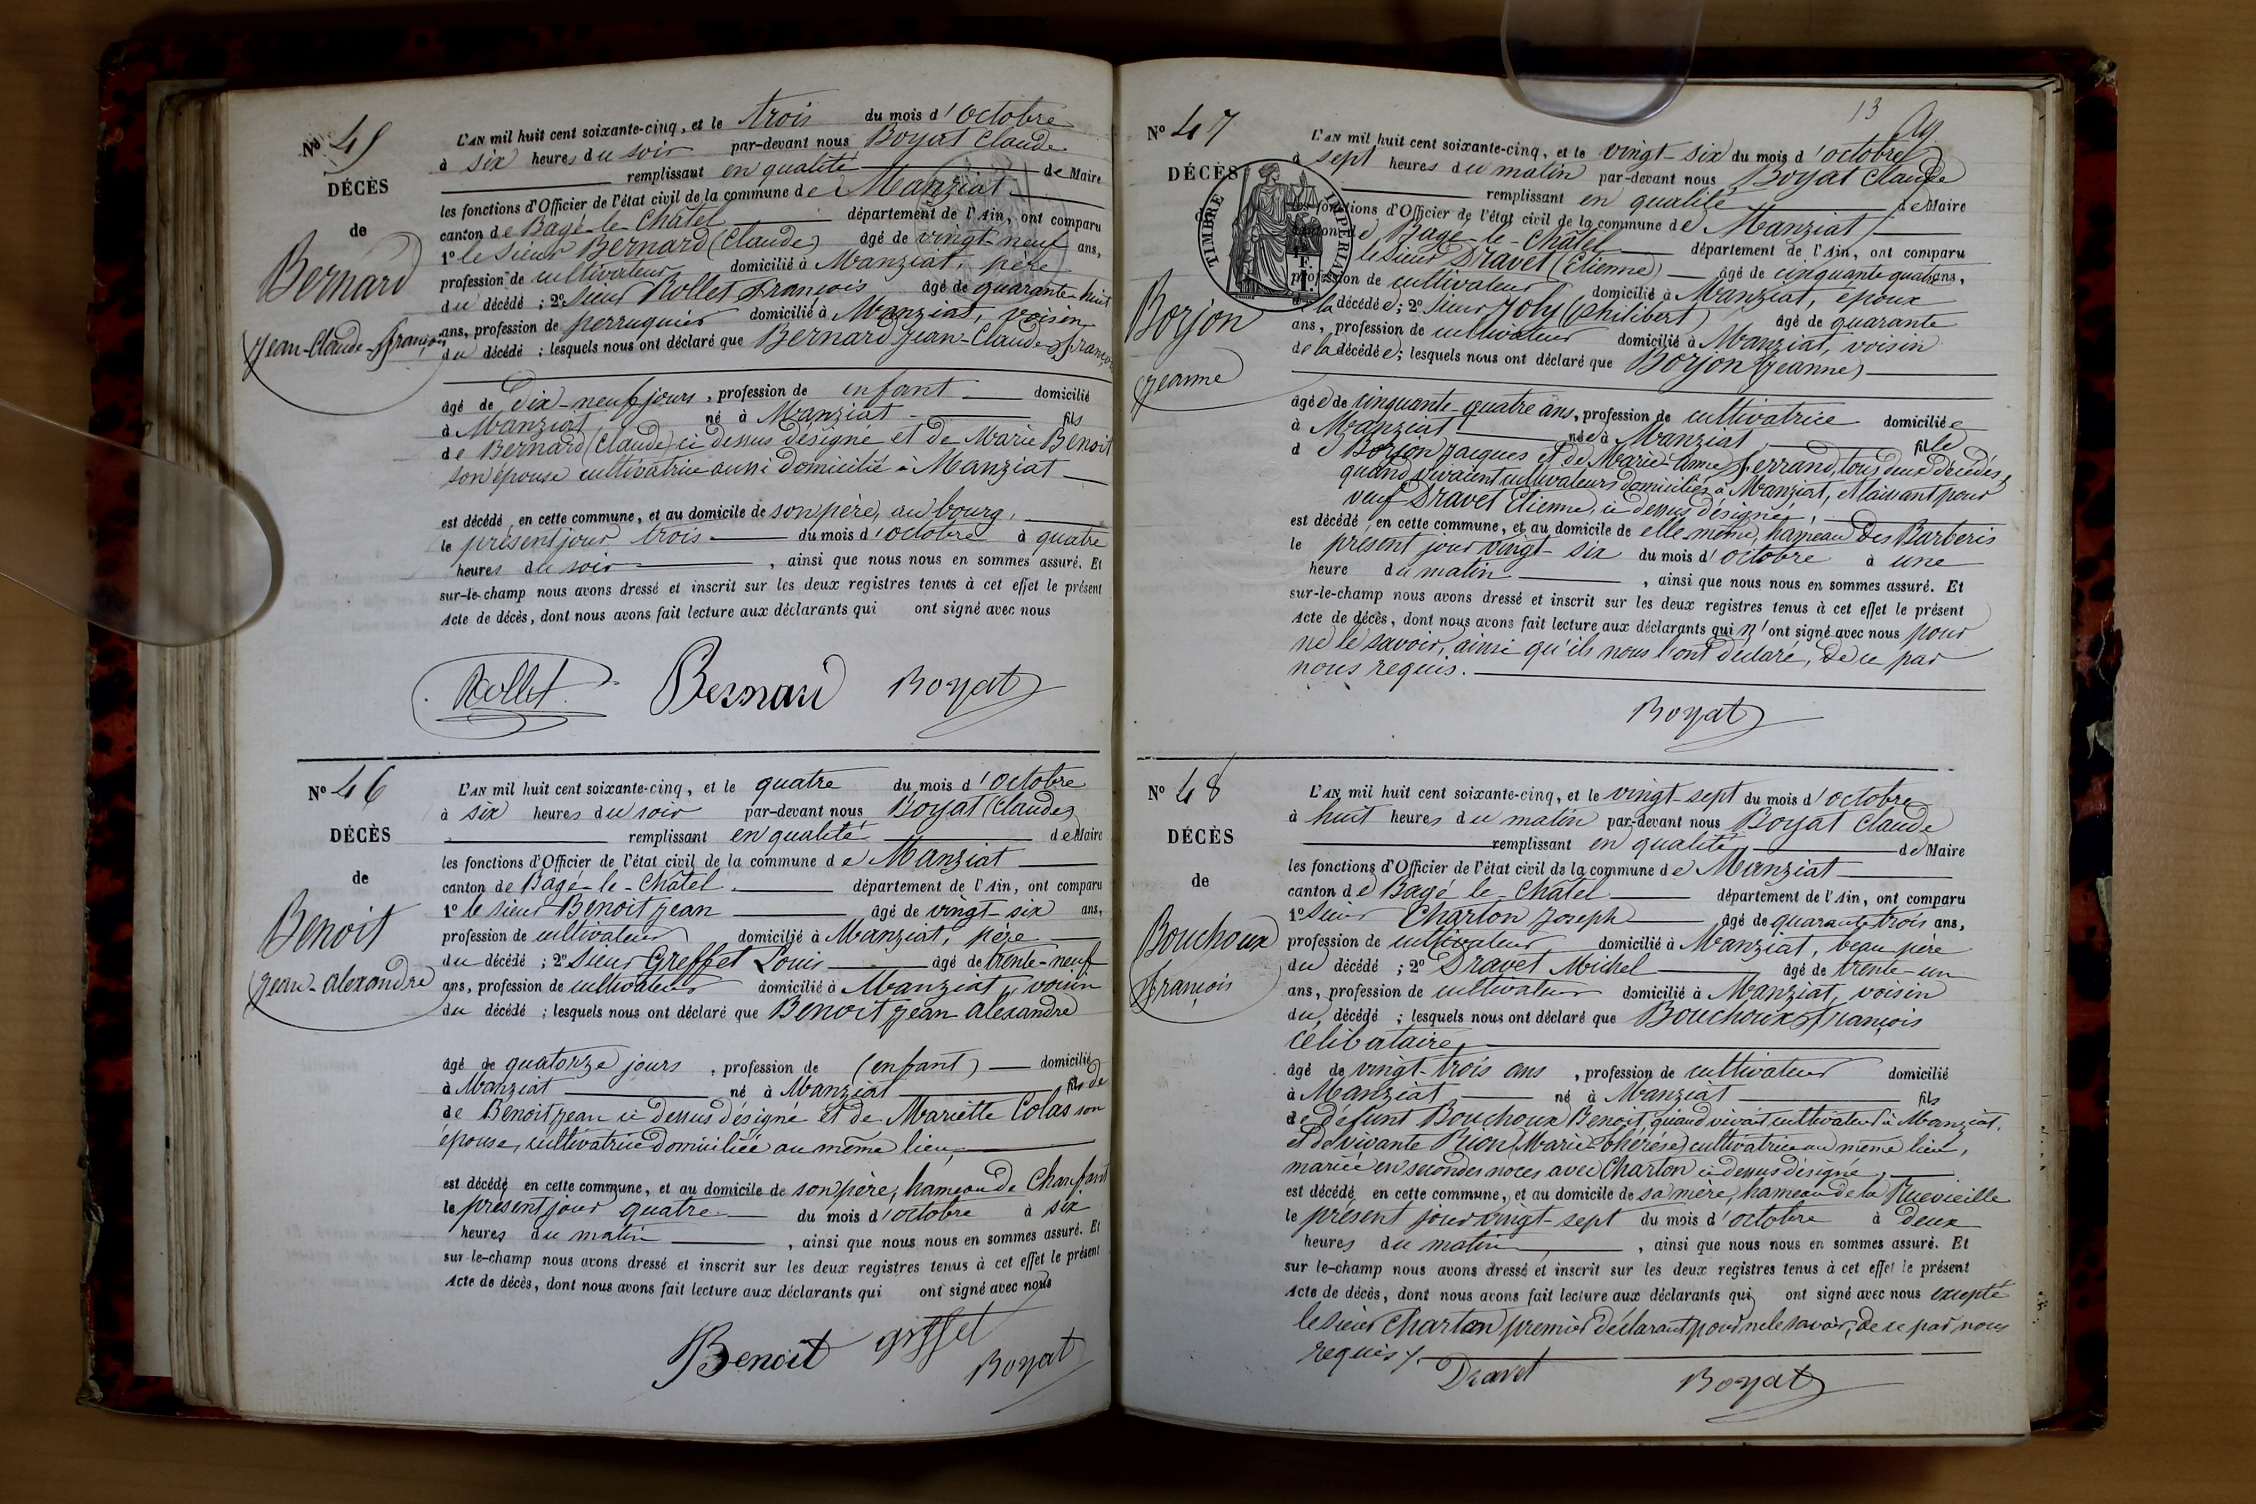 Nº 45
DÉCÈS
de
Bernard
Jean-Claude-François
L'AN mil huit cent soixante-cinq, et le trois du mois d'octobre
à six heures du soir par-devant nous Boyat Claude
remplissant en qualité de Maire
les fonctions d'Officier de l'état civil de la commune de Manziat
canton de Bagé-le-Châtel département de l'Ain, ont comparu
1º le sieur Bernard (Claude) âgé de vingt-neuf ans,
profession de cultivateur domicilié à Manziat, père
du décédé ; 2º sieur Rollet François âgé de quarante-huit
ans, profession de perruquier domicilié à Manziat, voisin
du décédé ; lesquels nous ont déclaré que Bernard Jean-Claude-François
âgé de Dix-neuf jours, profession de enfant domicilié
à Manziat né à Manziat fils
de Bernard (Claude) ci dessus désigné et de Marie Benoit
son épouse cultivatrice aussi domicilié à Manziat
est décédé en cette commune, et au domicile de son père, au bourg,
le présent jour trois du mois d'octobre à quatre
heures du soir, ainsi que nous nous en sommes assuré. Et
sur-le-champ nous avons dressé et inscrit sur les deux registres tenus à cet effet le présent
Acte de décès, dont nous avons fait lecture aux déclarants qui ont signé avec nous
Rollet Bernard Boyat
Nº 46
DÉCÈS
de
Benoit
Jean-Alexandre
L'AN mil huit cent soixante-cinq, et le quatre du mois d'octobre
à six heures du soir par-devant nous Boyat (Claude)
remplissant en qualité de Maire
les fonctions d'Officier de l'état civil de la commune de Manziat
canton de Bagé-le-Châtel département de l'Ain, ont comparu
1º le sieur Benoit Jean âgé de vingt-six ans,
profession de cultivateur domicilié à Manziat, père
du décédé ; 2º sieur Greffet Louis âgé de trente-neuf
ans, profession de cultivateur domicilié à Manziat, voisin
du décédé ; lesquels nous ont déclaré que Benoit Jean Alexandre
âgé de quatorze jours, profession de (enfant) domicilié
à Manziat né à Manziat fils de
de Benoit Jean ci dessus désigné et de Mariette Colas son
épouse, cultivatrice domiciliée au même lieu,
est décédé en cette commune, et au domicile de son père, hameau de Chanfant
le présent jour quatre du mois d'octobre à six
heures du matin, ainsi que nous nous en sommes assuré. Et
sur-le-champ nous avons dressé et inscrit sur les deux registres tenus à cet effet le présent
Acte de décès, dont nous avons fait lecture aux déclarants qui ont signé avec nous
Benoit Greffet Boyat
13
Nº 47
DÉCÈS
TIMBRE IMPÉRIAL
Borjon
Jeanne
L'AN mil huit cent soixante-cinq, et le vingt-six du mois d'octobre
à sept heures du matin par-devant nous Boyat Claude
remplissant en qualité de Maire
les fonctions d'Officier de l'état civil de la commune de Manziat
canton de Bagé-le-Châtel département de l'Ain, ont comparu
le sieur Dravet (Etienne) âgé de cinquante quatre ans,
profession de cultivateur domicilié à Manziat, époux
de la décédée ; 2º sieur Joly (Philibert) âgé de quarante
ans, profession de cultivateur domicilié à Manziat, voisin
de la décédée ; lesquels nous ont déclaré que Borjon (Jeanne)
âgée de cinquante-quatre ans, profession de cultivatrice domiciliée
à Manziat née à Manziat fille
de Borjon Jacques et de Marie-Anne Ferrand, tous deux décédés,
quand vivaient cultivateurs domiciliés à Manziat, et laissant pour
veuf Dravet Etienne, ci dessus désigné,
est décédé en cette commune, et au domicile de elle même, hameau des Barberis
le présent jour vingt-six du mois d'octobre à une
heure du matin, ainsi que nous nous en sommes assuré. Et
sur-le-champ nous avons dressé et inscrit sur les deux registres tenus à cet effet le présent
Acte de décès, dont nous avons fait lecture aux déclarants qui n'ont signé avec nous pour
ne le savoir, ainsi qu'ils nous l'ont déclaré, de ce par
nous requis.
Boyat
Nº 48
DÉCÈS
de
Bouchoux
François
L'AN mil huit cent soixante-cinq, et le vingt-sept du mois d'octobre
à huit heures du matin par-devant nous Boyat Claude
remplissant en qualité de Maire
les fonctions d'Officier de l'état civil de la commune de Manziat
canton de Bagé-le-Châtel département de l'Ain, ont comparu
1º sieur Charton Joseph âgé de quarante trois ans,
profession de cultivateur domicilié à Manziat, beau père
du décédé ; 2º Dravet Michel âgé de trente-un
ans, profession de cultivateur domicilié à Manziat, voisin
du décédé ; lesquels nous ont déclaré que Bouchoux François
célibataire,
âgé de vingt-trois ans, profession de cultivateur domicilié
à Manziat né à Manziat fils
de défunt Bouchoux Benoit, quand vivait cultivateur à Manziat,
et de vivante Pion (Marie-Thérèse) cultivatrice au même lieu,
mariée en secondes noces avec Charton ci dessus désigné,
est décédé en cette commune, et au domicile de sa mère, hameau de la Ruevieille
le présent jour vingt-sept du mois d'octobre à deux
heures du matin, ainsi que nous nous en sommes assuré. Et
sur le-champ nous avons dressé et inscrit sur les deux registres tenus à cet effet le présent
Acte de décès, dont nous avons fait lecture aux déclarants qui ont signé avec nous excepté
le sieur Charton premier déclarant pour ne le savoir, de ce par nous
requis.
Dravet Boyat